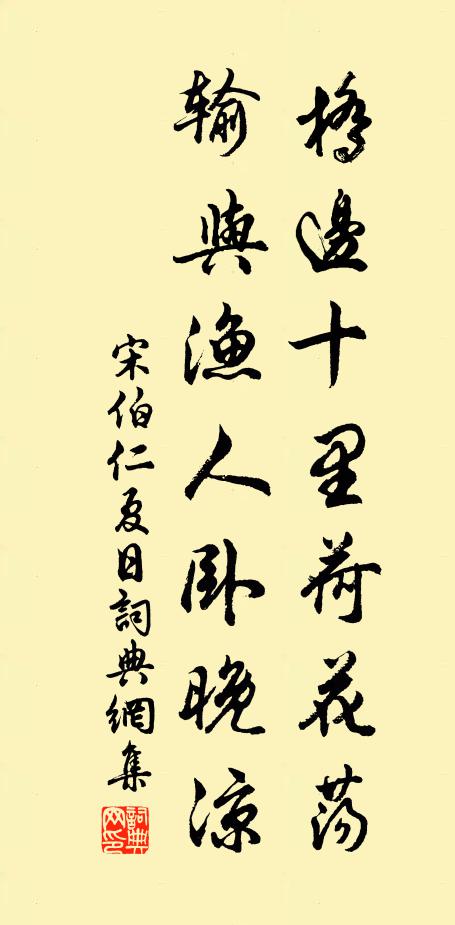 橋邊十里荷花蕩
輸與漁人卧晚涼
宋伯仁夏日詞典網集
詞典网印